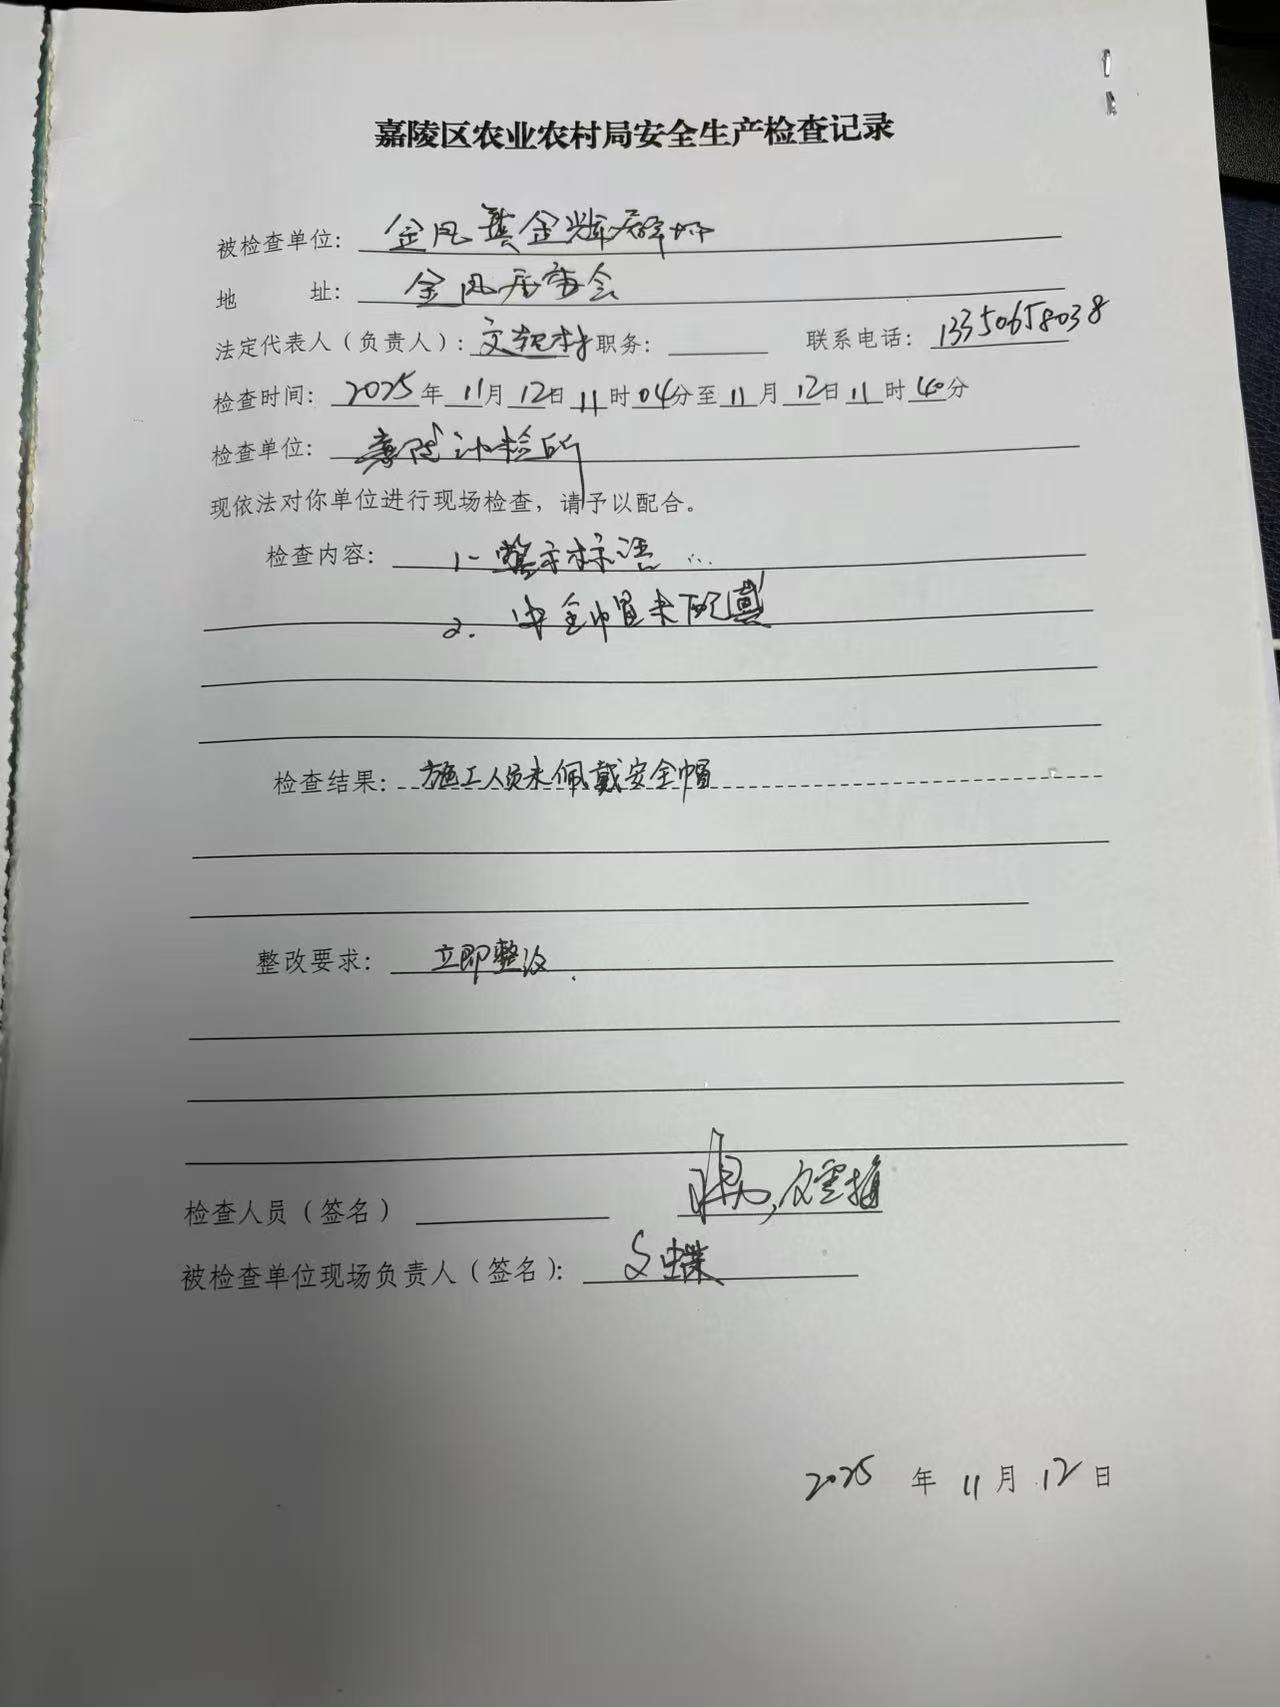 嘉陵区农业农村局安全生产检查记录
被检查单位：金凤镇金辉
地 址：金凤居委会
法定代表人（负责人）：文 职务： 联系电话：13350658038
检查时间：2025年11月12日11时04分至11月12日11时40分
检查单位：嘉陵 检所
现依法对你单位进行现场检查，请予以配合。
检查内容：1、警示标语
2、安全帽未配
检查结果：施工人员未佩戴安全帽
整改要求：立即整改
检查人员（签名）
被检查单位现场负责人（签名）：文蝶
2025年11月12日